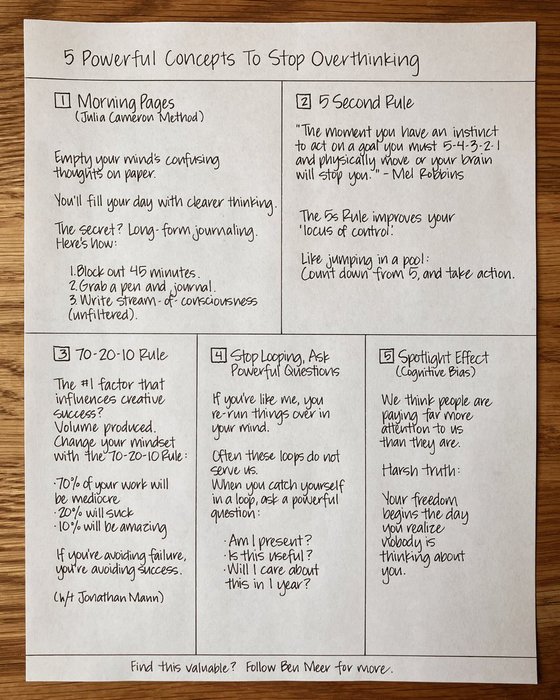 5 Powerful Concepts To Stop Overthinking
1 Morning Pages
(Julia Cameron Method)
Empty your mind's confusing
thoughts on paper.
You'll fill your day with clearer thinking.
The secret? Long-form journaling.
Here's how:
1. Block out 45 minutes.
2. Grab a pen and journal.
3. Write stream-of-consciousness
(unfiltered).
2 5 Second Rule
"The moment you have an instinct
to act on a goal you must 5-4-3-2-1
and physically move or your brain
will stop you." - Mel Robbins
The 5s Rule improves your
'locus of control'.
Like jumping in a pool:
Count down from 5, and take action.
3 70-20-10 Rule
The #1 factor that
influences creative
success?
Volume produced.
Change your mindset
with the 70-20-10 Rule:
·70% of your work will
be mediocre
·20% will suck
·10% will be amazing
If you're avoiding failure,
you're avoiding success.
(h/t Jonathan Mann)
4 Stop Looping, Ask
Powerful Questions
If you're like me, you
re-run things over in
your mind.
Often these loops do not
serve us.
When you catch yourself
in a loop, ask a powerful
question:
·Am I present?
·Is this useful?
·Will I care about
this in 1 year?
5 Spotlight Effect
(Cognitive Bias)
We think people are
paying far more
attention to us
than they are.
Harsh truth:
Your freedom
begins the day
you realize
nobody is
thinking about
you.
Find this valuable? Follow Ben Meer for more.